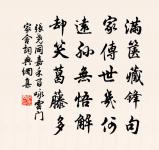 滿篋藏鋒句
家傳世幾何
遠孫無悟解
却笑葛藤多
張堯同嘉禾百咏雲門
家會詞典網集